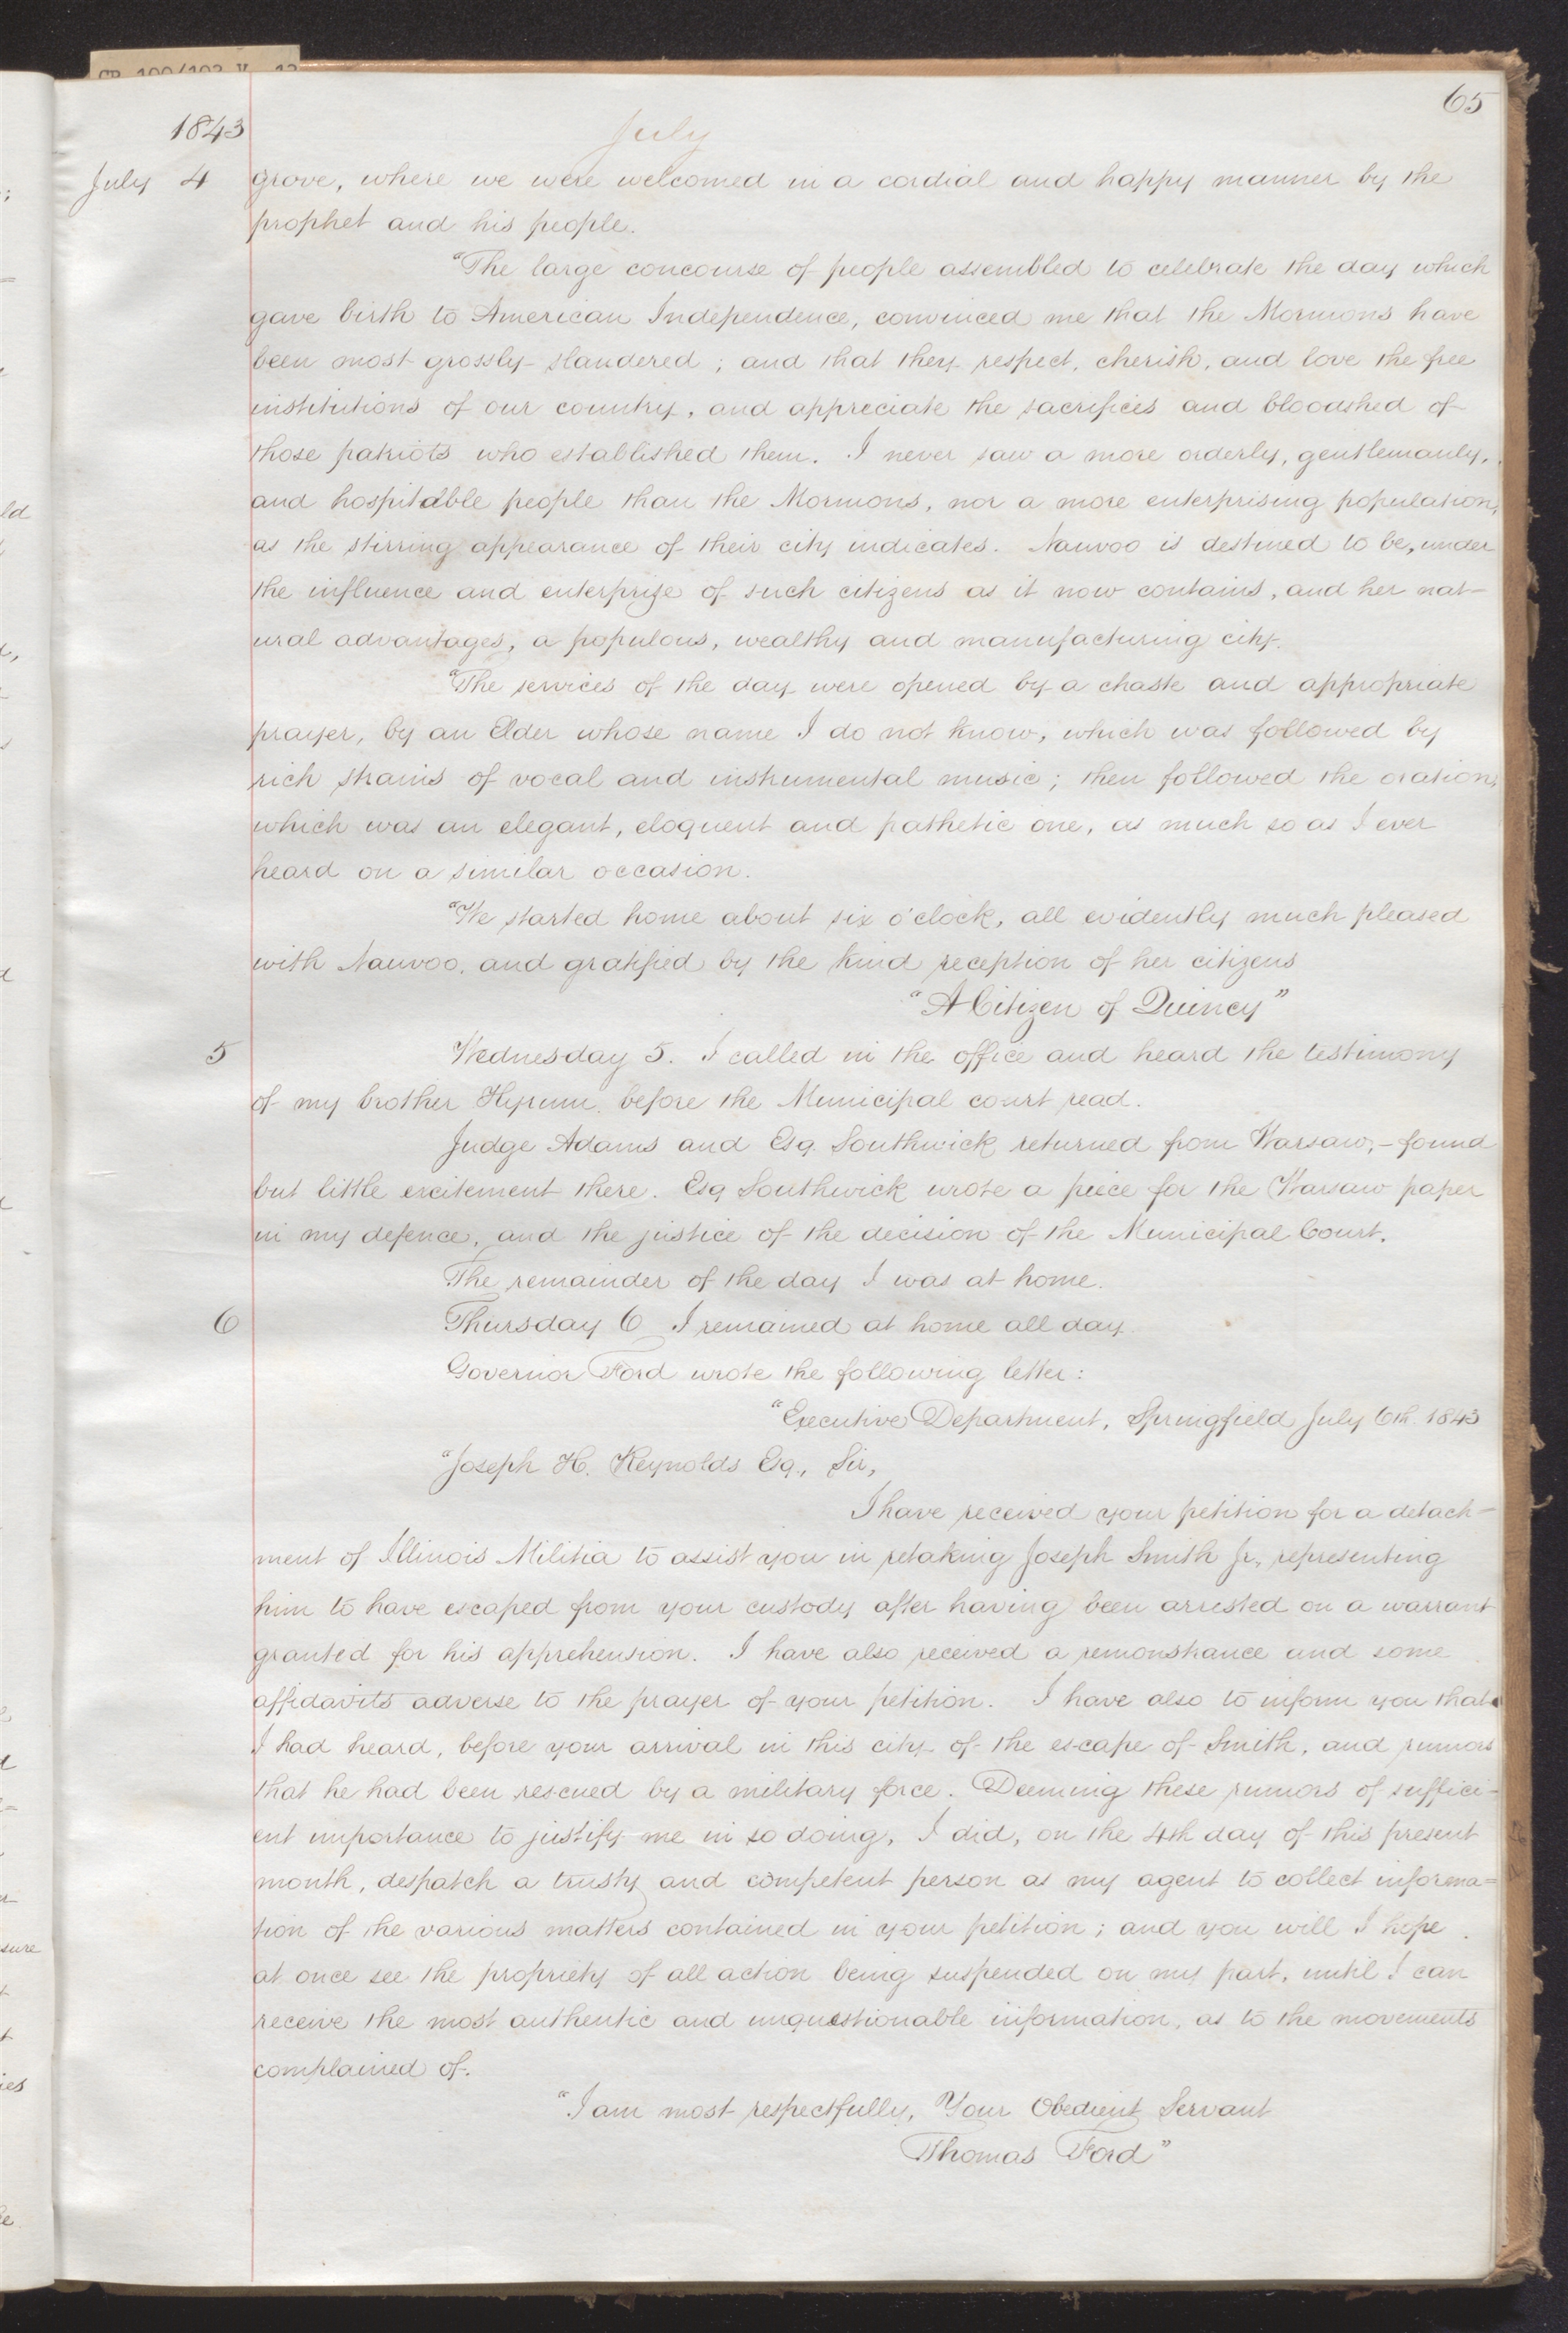 CR 100/102 V. 12
65
1843
July
July 4 grove, where we were welcomed in a cordial and happy manner by the
prophet and his people.
"The large concourse of people assembled to celebrate the day which
gave birth to American Independence, convinced me that the Mormons have
been most grossly slandered; and that they respect, cherish, and love the free
institutions of our country, and appreciate the sacrifices and bloodshed of
those patriots who established them. I never saw a more orderly, gentlemanly,
and hospitable people than the Mormons, nor a more enterprising population,
as the stirring appearance of their city indicates. Nauvoo is destined to be, under
the influence and enterprize of such citizens as it now contains, and her nat-
ural advantages, a populous, wealthy and manufacturing city.
"The services of the day were opened by a chaste and appropriate
prayer, by an Elder whose name I do not know, which was followed by
rich strains of vocal and instrumental music; then followed the oration,
which was an elegant, eloquent and pathetic one, as much so as I ever
heard on a similar occasion.
"We started home about six o'clock, all evidently much pleased
with Nauvoo, and gratified by the kind reception of her citizens
"A Citizen of Quincy"
5 Wednesday 5. I called in the office and heard the testimony
of my brother Hyrum before the Municipal court read.
Judge Adams and Esq. Southwick returned from Warsaw;- found
but little excitement there. Esq Southwick wrote a piece for the Warsaw paper
in my defence, and the justice of the decision of the Municipal Court.
The remainder of the day I was at home.
6 Thursday 6 I remained at home all day.
Governor Ford wrote the following letter:
"Executive Department, Springfield July 6th. 1843
"Joseph H. Reynolds Esq., Sir,
I have received your petition for a detach-
ment of Illinois Militia to assist you in retaking Joseph Smith Jr., representing
him to have escaped from your custody after having been arrested on a warrant
granted for his apprehension. I have also received a remonstrance and some
affidavits adverse to the prayer of your petition. I have also to inform you that
I had heard, before your arrival in this city of the escape of Smith, and rumors
that he had been rescued by a military force. Deeming these rumors of suffici-
ent importance to justify me in so doing, I did, on the 4th day of this present
month, despatch a trusty and competent person as my agent to collect informa=
tion of the various matters contained in your petition; and you will I hope
at once see the propriety of all action being suspended on my part, until I can
receive the most authentic and unquestionable information, as to the movements
complained of.
"I am most respectfully, Your Obedient Servant
Thomas Ford"